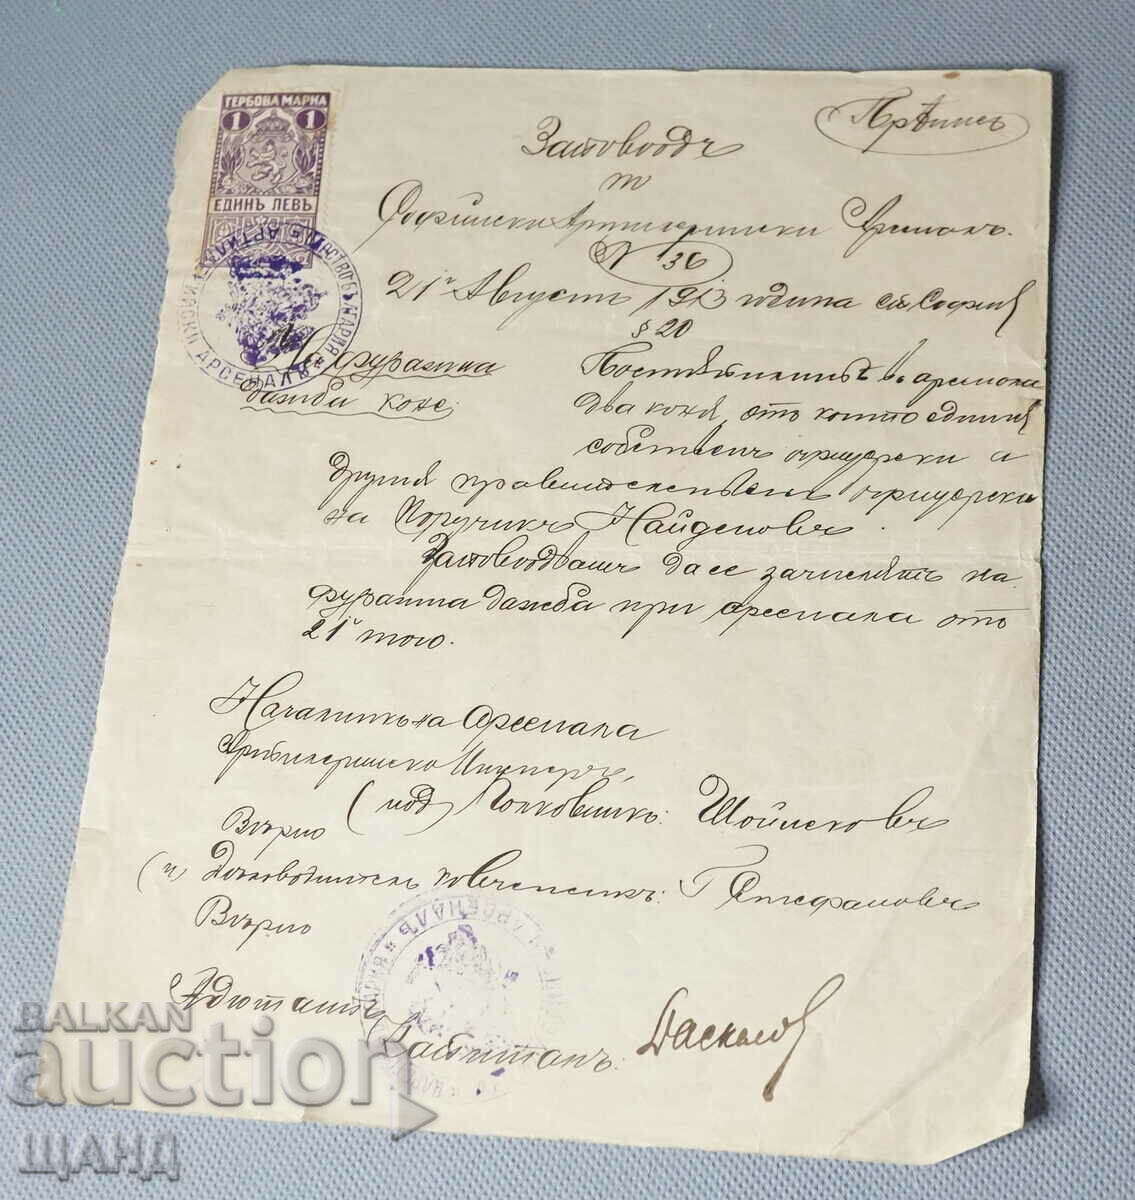 ГЕРБОВА МАРКА
1 1
ЕДИНЪ ЛЕВЪ
АРСЕНАЛЪ
Прѣписъ
Заповѣдь
по
Софийски Артилерийски Арсеналъ.
N 36
21й Августъ 1913 година гр. София
§ 20
На фуражна
дажба коне:
Постѫпилитѣ въ арсенала
два коня, отъ които единия
собственъ офицерски а
другия правителственъ офицерски
на Поручикъ Найденовъ
Заповѣдвамъ да се зачислятъ на
фуражна дажба при арсенала отъ
21й того.
Началникъ на Арсенала
Артилерийски Инженеръ,
(под) Полковникъ: Шойлековъ
Вѣрно
(п) Дѣловодителъ Г Стефановъ
Вѣрно
Адютантъ,
Капитанъ: Даскалов
BALKAN
auction
ЩАНД